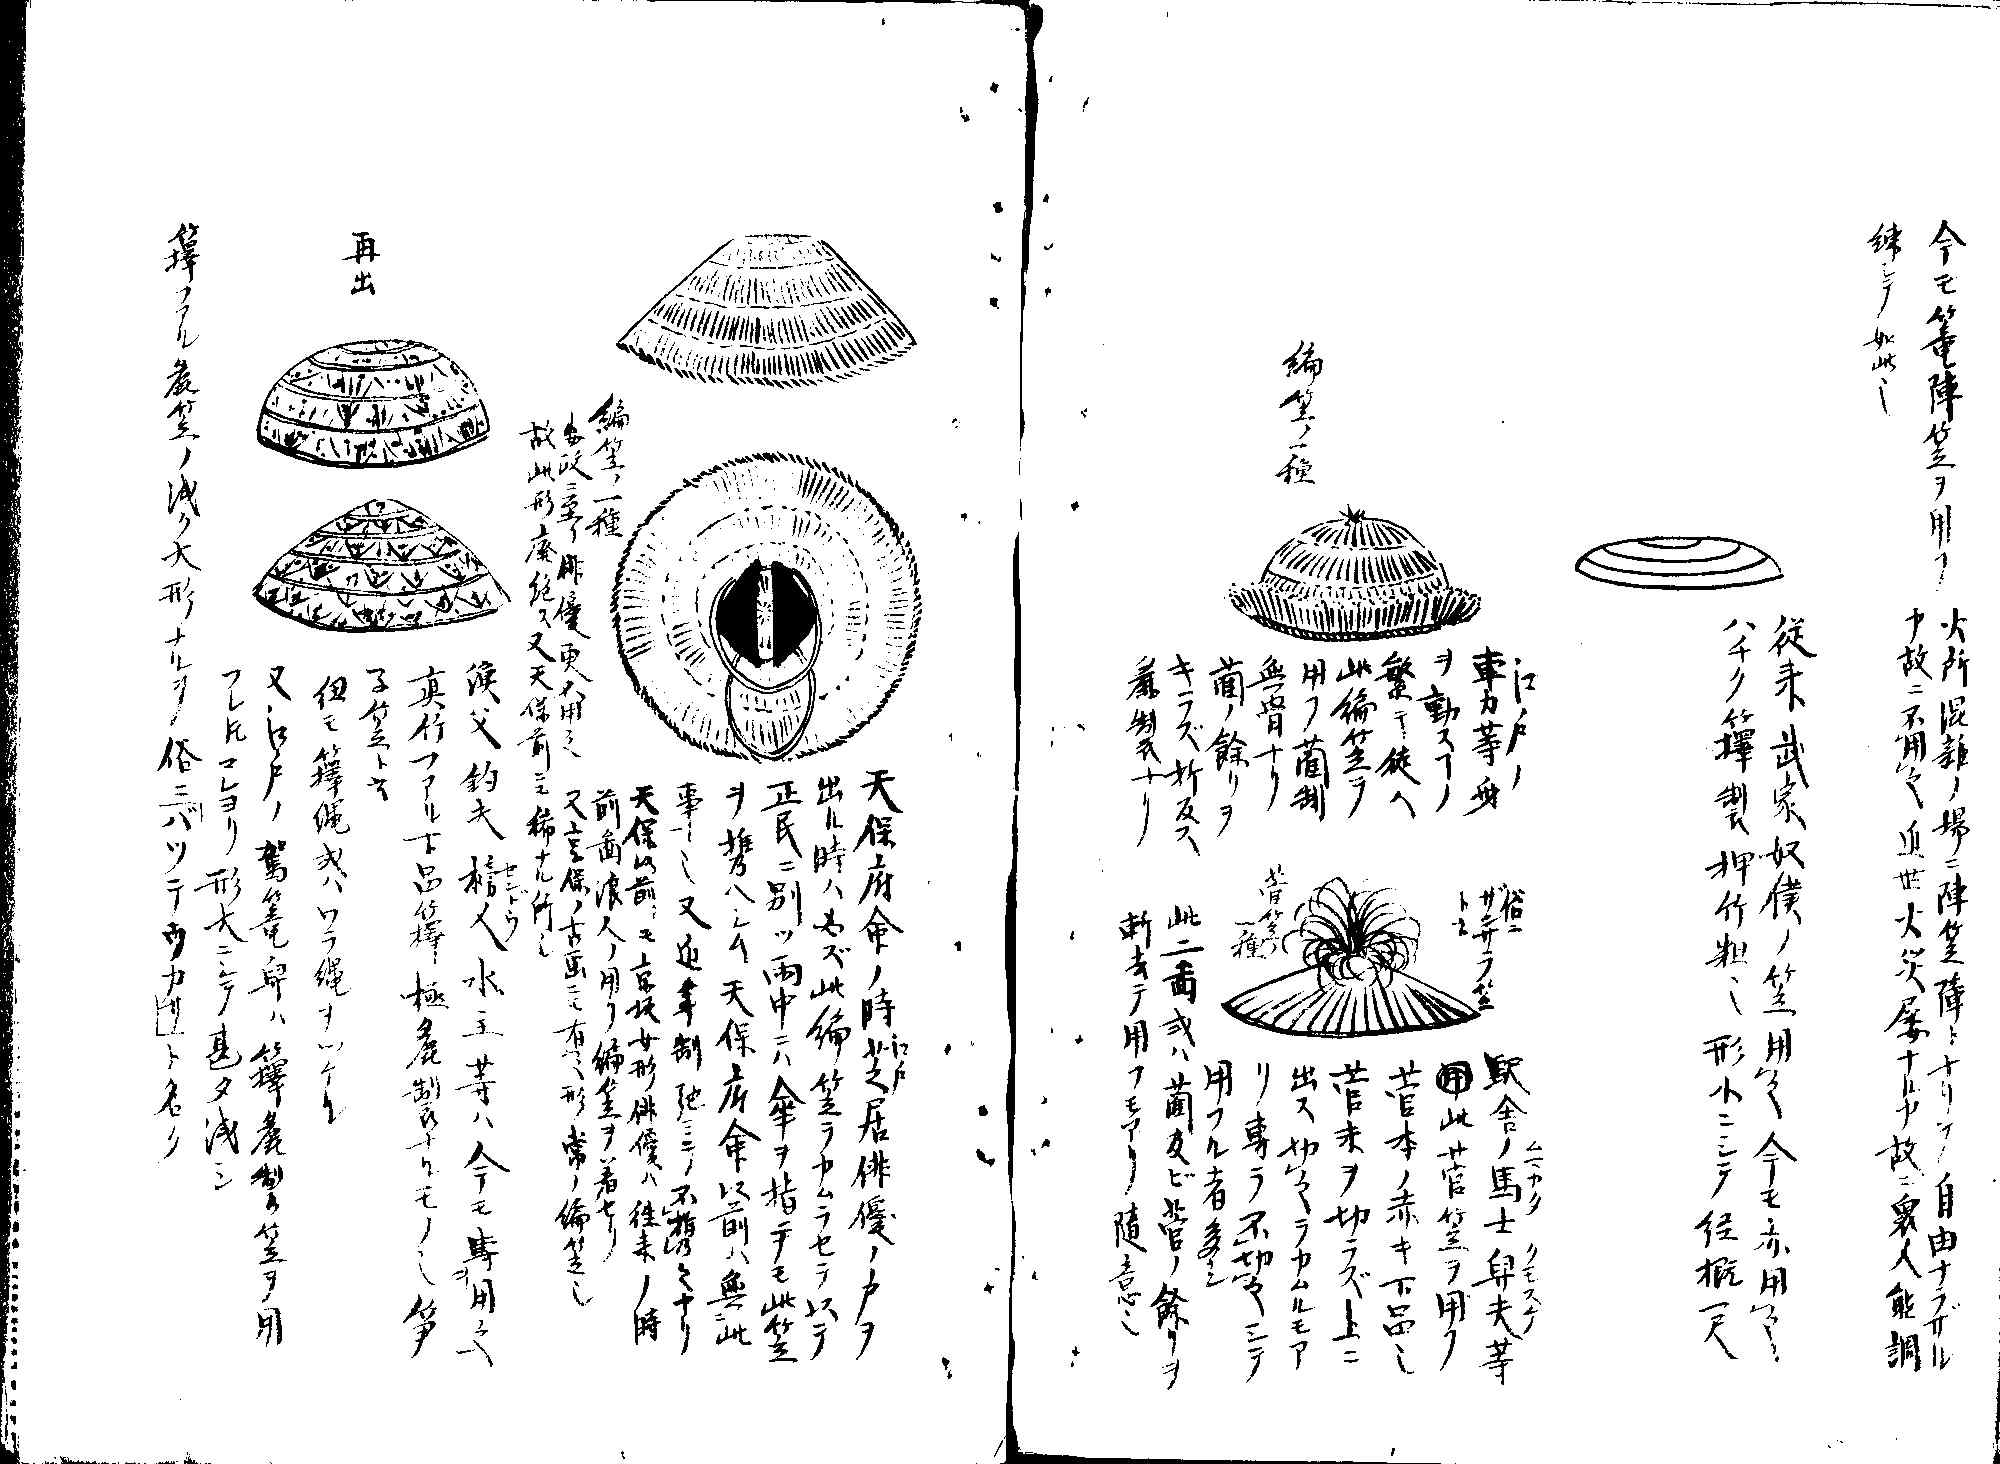 今モ篭陣笠ヲ用フ
火所混雑ノ場ニ陣笠障トナリテ自由ナラザル
ヿ故ニ不用之近世火災屡ナルヿ故ニ衆人能調
練シテ如此也
従来武家奴僕ノ笠用之今モ亦用之
ハチク籜製押竹粗也形小ニシテ径概一尺
編笠ノ一種
江戸ノ
車力等身
ヲ動スヿノ
繁キ徒ハ
此編笠ヲ
用フ藺制
無骨ナリ
藺ノ餘リヲ
キラズ折反ス
麁製ナリ
俗ニ
ザンザラ笠
ト云
菅笠ノ
一種
駅舎ノ馬士舁夫等
クモスケ
用此菅笠ヲ用フ
菅本ノ赤キ下品也
菅末ヲ切ラズ上ニ
出ス切之ヲカムルモア
リ専ラ不切之シテ
用フル者多シ
此二圖或ハ藺及ビ菅ノ餘リヲ
斬去テ用フモアリ随意也
編笠ノ一種
安政ニ至リ俳優更ニ不用之
故此形廃絶ス又天保前ニモ稀ナル所也
天保府命ノ時江戸芝居俳優ノ戸ヲ
出ル時ハ必ズ此編笠ヲカムラセテ以テ
正民ニ別ツ雨中ニハ傘ヲ指テモ此笠
ヲ携ヘシム天保府命以前ハ無此
事也又近年制弛ミテ不携之ナリ
天保以前ニモ京坂女形俳優ハ往来ノ時
前圖浪人ノ用フ編笠ヲ着セリ
又享保ノ古画ニモ有之形常ノ編笠也
再出
漁父釣夫榜人水主等ハ今モ専用之
センドウ
ヲ
真竹フアル古品籜極麁製ナルモノ也笋
子笠ト云
紐モ籜縄或ハワラ縄ヲツケル
又江戸ノ駕篭舁ハ籜麁製ノ笠ヲ用
フレ𪜈コレヨリ形大ニシテ甚タ浅シ
籜フアル麁笠ノ浅ク大形ナルヲ俗ニバツテウカサト名ク